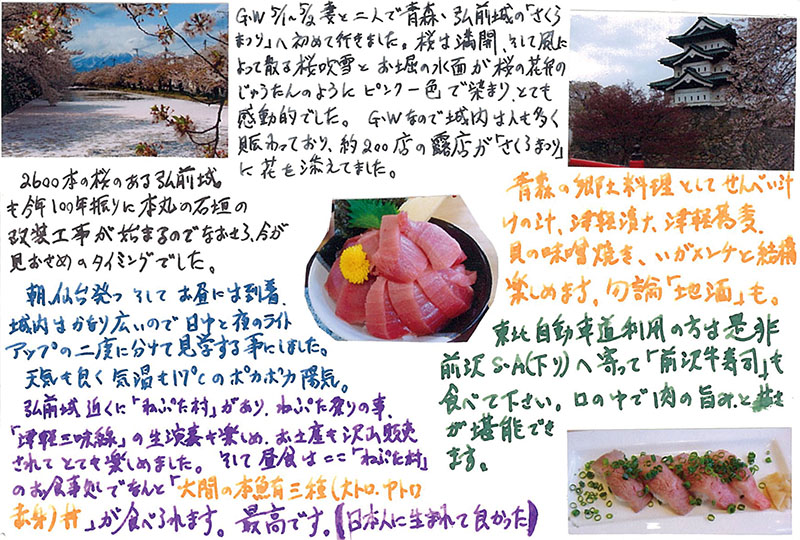 G.W 5/1~5/2 妻と二人で青森、弘前城の「さくら
まつり」へ初めて行きました。桜は満開、そして風に
よって散る桜吹雪とお堀の水面が桜の花弁の
じゅうたんのようにピンク一色で染まり、とても
感動的でした。G.Wなので城内は人も多く
賑わっており、約200店の露店が「さくらまつり」
に花を添えてました。
2600本の桜のある弘前城
も今年100年振りに本丸の石垣の
改装工事が始まるのでなおせら、今が
見おさめのタイミングでした。
朝、仙台発つ そして お昼には到着、
城内はかなり広いので日中と夜のライト
アップの二度に分けて見学する事にしました。
天気も良く気温も17℃のポカポカ陽気。
弘前城近くに「ねぷた村」があり、ねぷた祭りの事、
「津軽三味線」の生演奏も楽しめ、お土産も沢山販売
されてとても楽しめました。そして昼食はここ「ねぷた村」
のお食事処でなんと「大間の本鮪有三種(大トロ、中トロ
赤身)丼」が食べられます。最高です。(日本人に生まれて良かった)
青森の郷土料理としてせんべい汁
けの汁、津軽漬け、津軽蕎麦、
貝の味噌焼き、いがメンチと結構
楽しめます。勿論「地酒」も。
東北自動車道利用の方は是非
前沢S・A(下り)へ寄って「前沢牛寿司」も
食べて下さい。口の中で肉の旨みと甘さ
が堪能でき
ます。